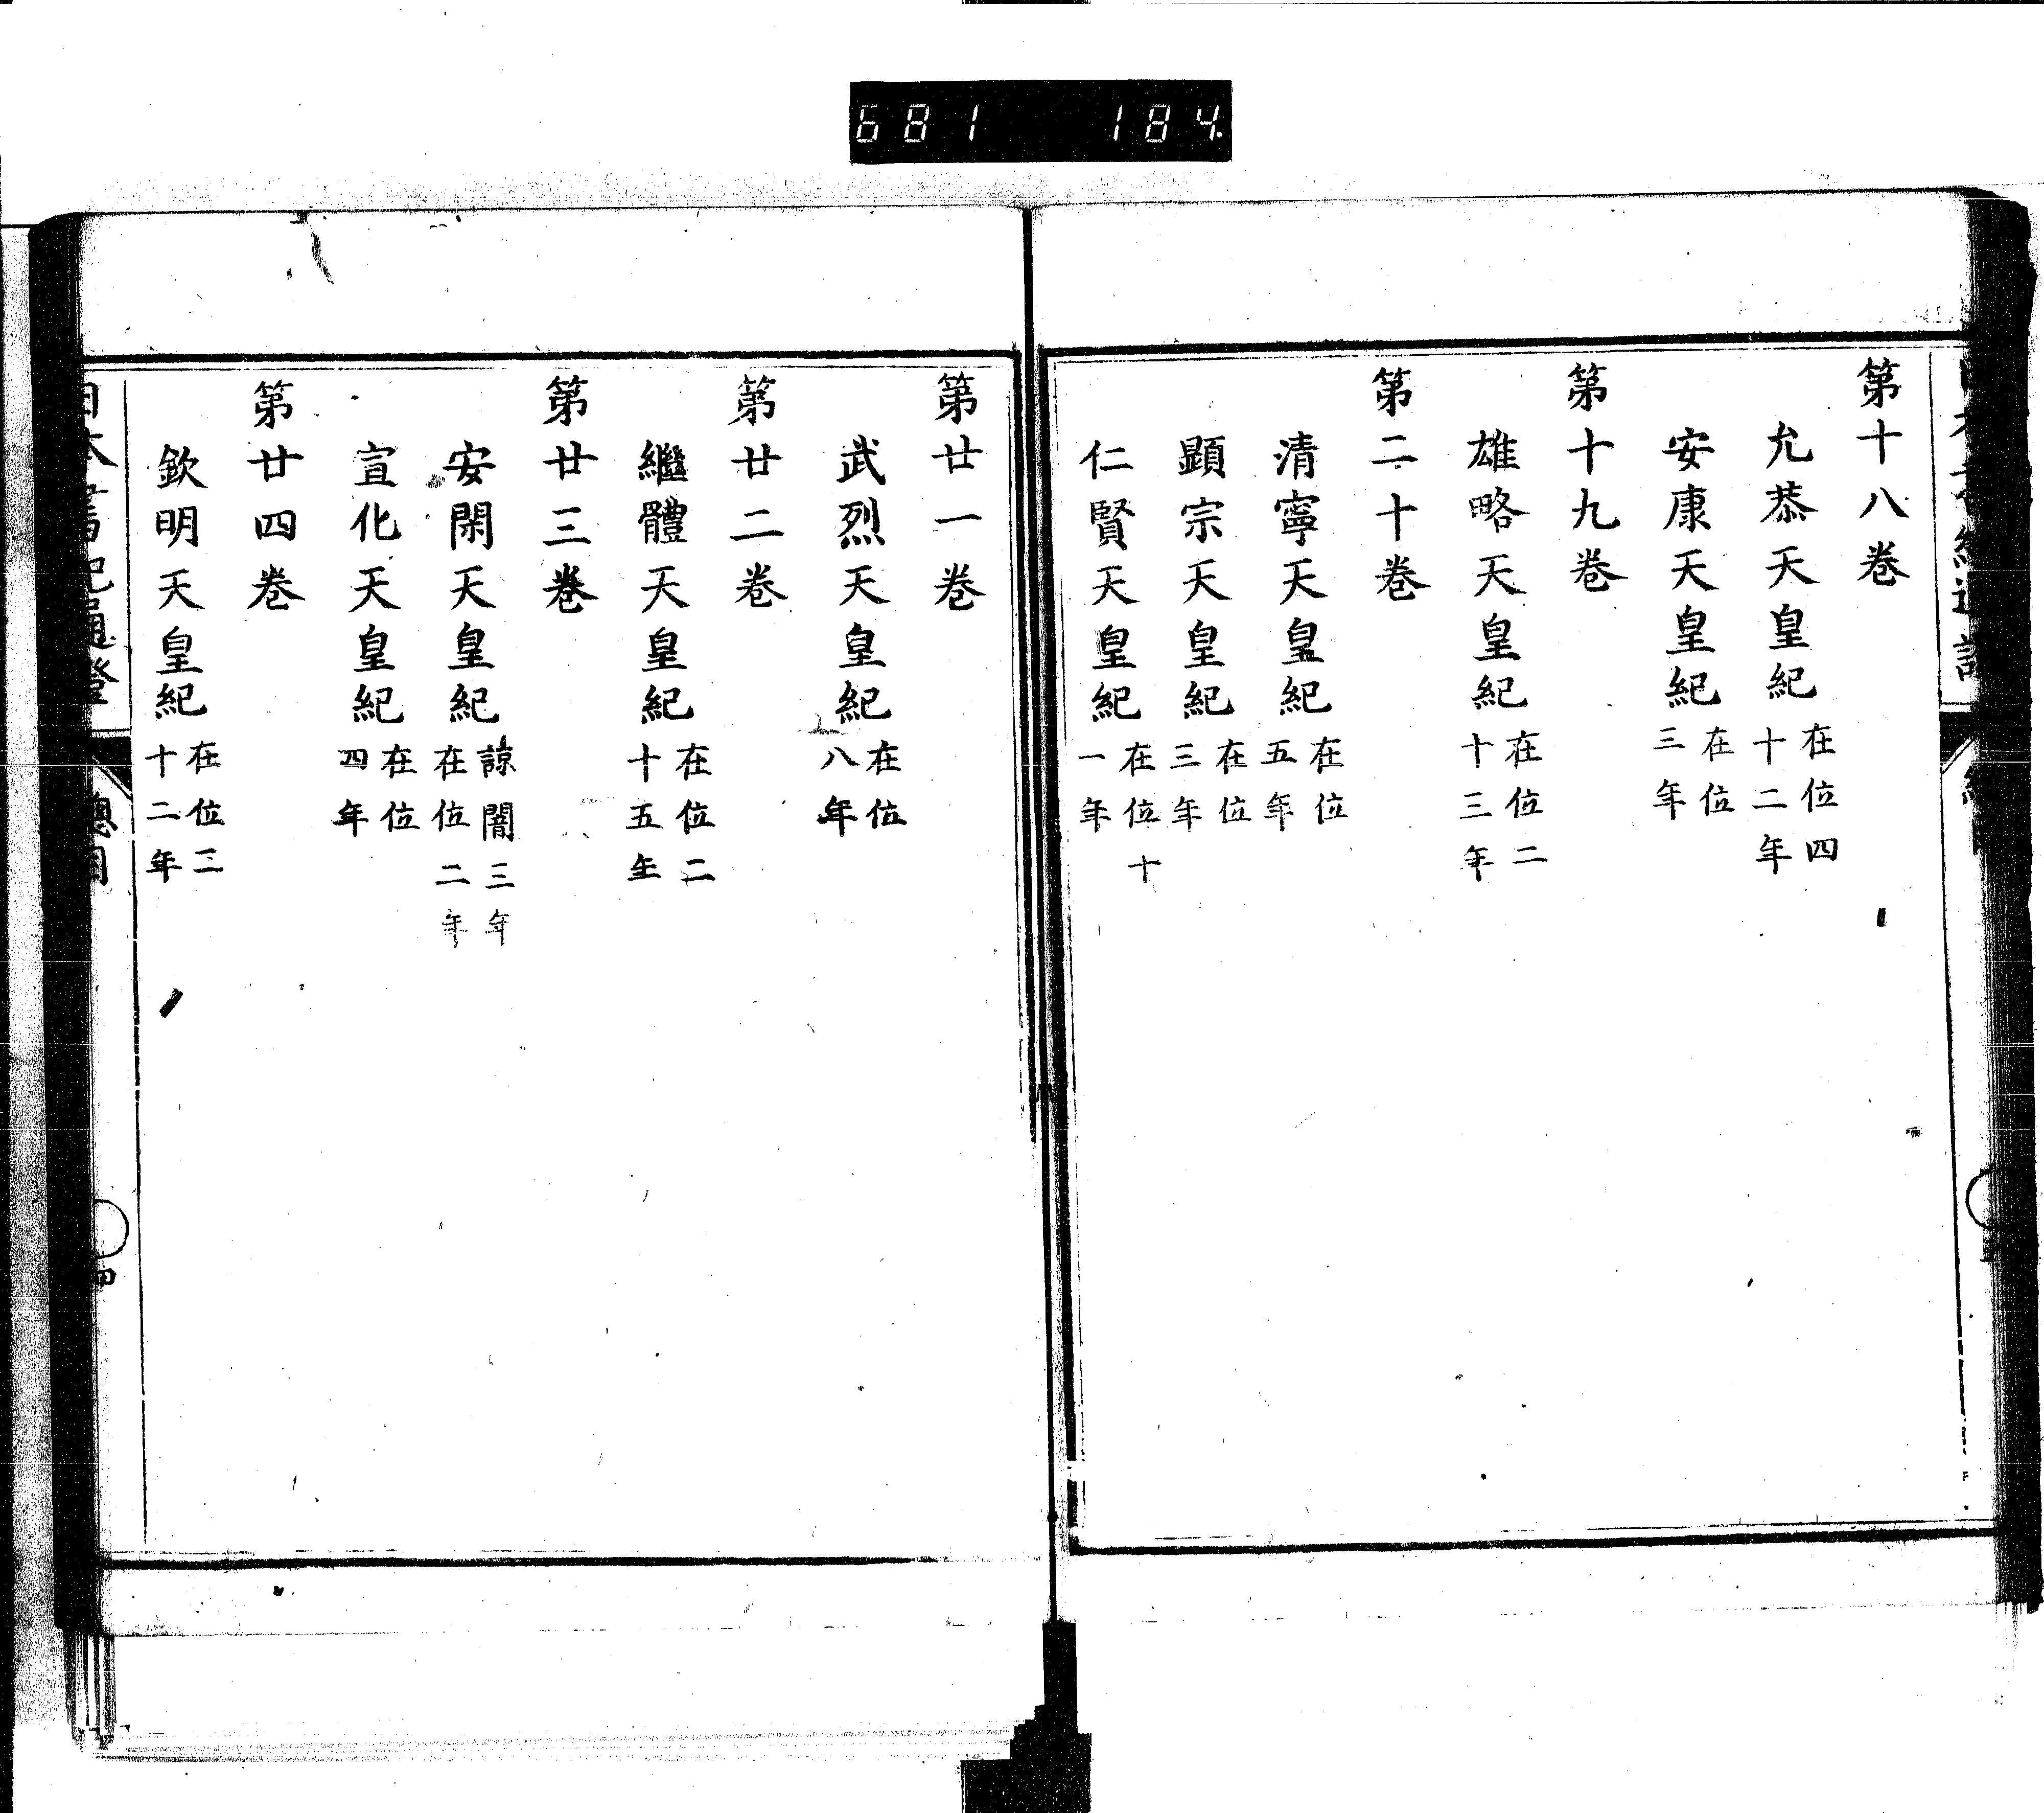 681 184
第十八巻
允恭天皇紀 在位四十二年
安康天皇紀 在位三年
第十九巻
雄略天皇紀 在位二十三年
第二十巻
清寧天皇紀 在位五年
顕宗天皇紀 在位三年
仁賢天皇紀 在位十一年
第廿一巻
武烈天皇紀 在位八年
第廿二巻
繼體天皇紀 在位二十五年
第廿三巻
安閑天皇紀 諒闇三年在位二年
宣化天皇紀 在位四年
第廿四巻
欽明天皇紀 在位三十二年
日本書紀通證 總目 四